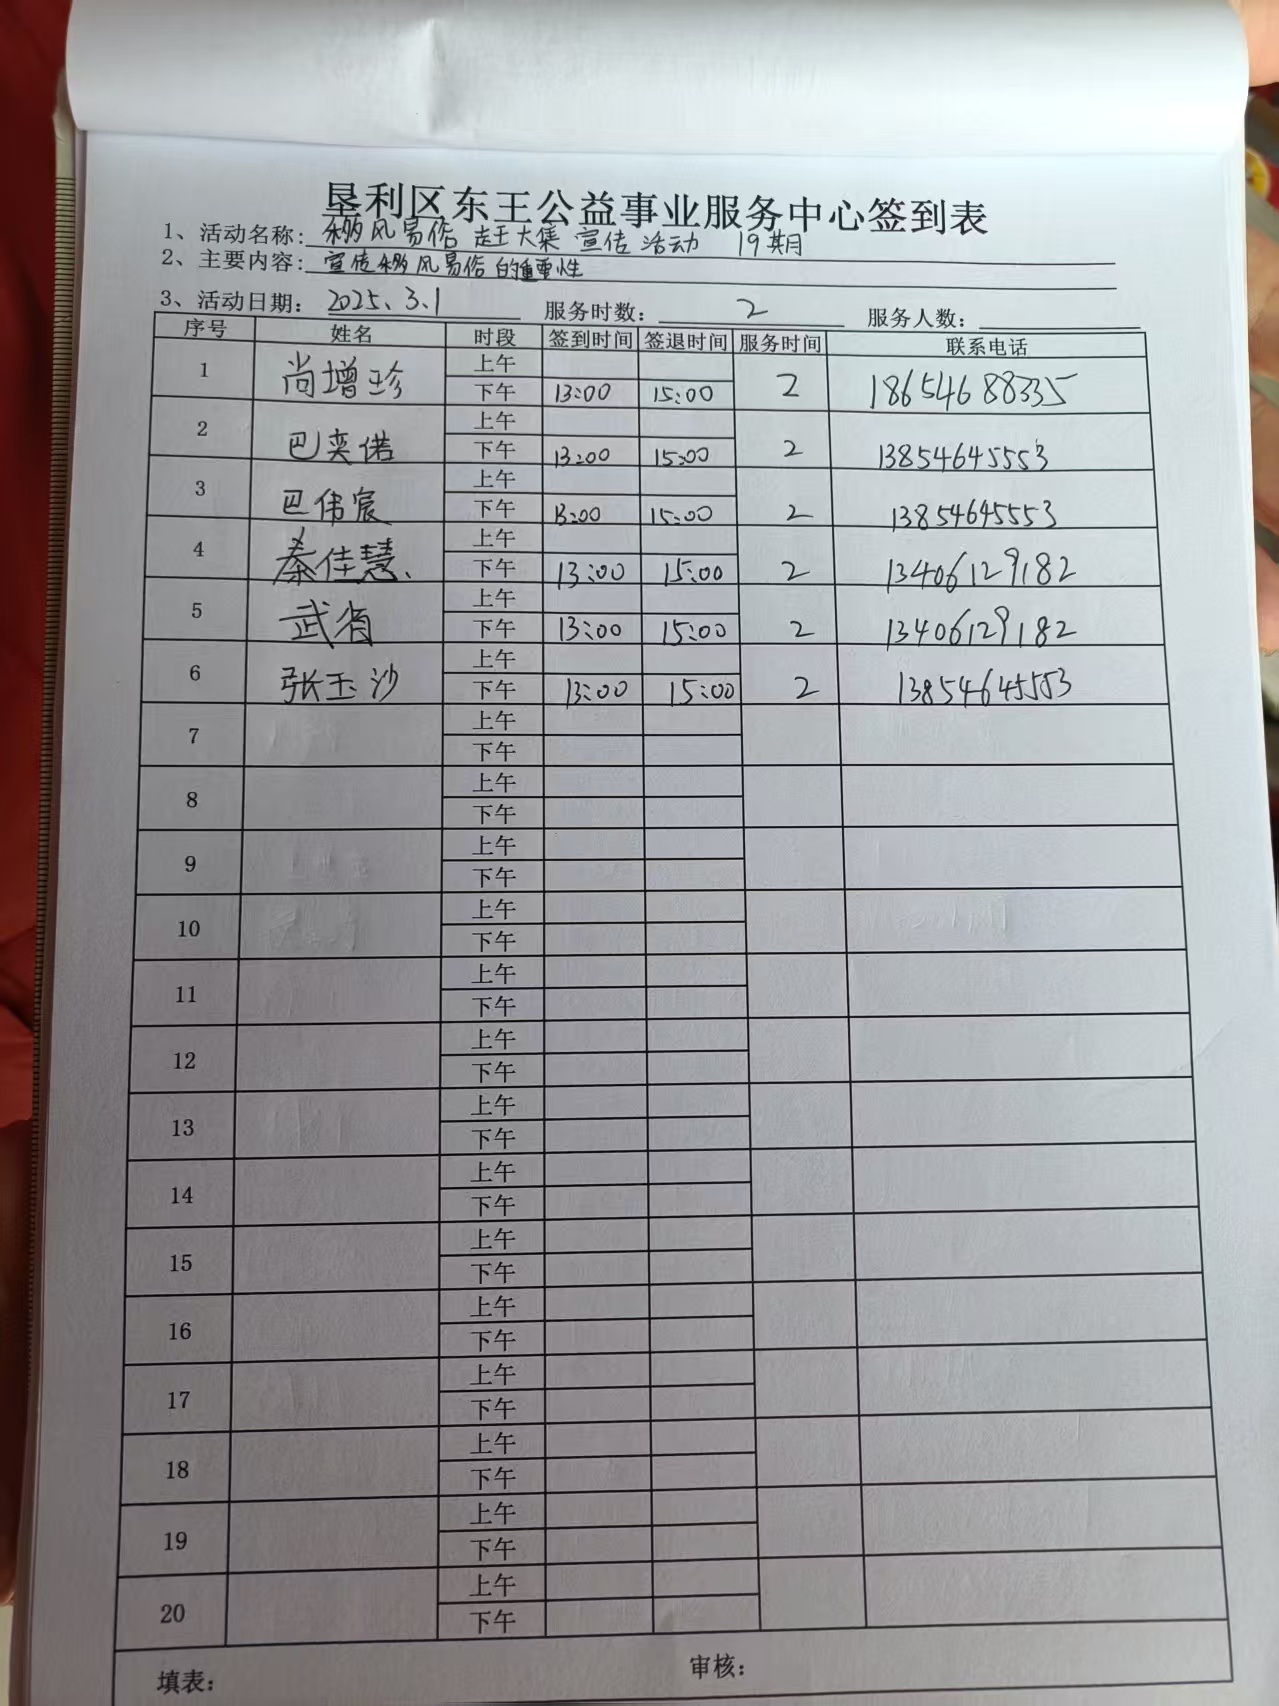 垦利区东王公益事业服务中心签到表
1、活动名称: 移风易俗 赶大集 宣传 活动 19期
2、主要内容: 宣传移风易俗的重要性
3、活动日期: 2025.3.1 服务时数: 2 服务人数:
序号 姓名 时段 签到时间 签退时间 服务时间 联系电话
1 尚增珍 上午
下午 13:00 15:00 2 18654688335
2 巴奕诺 上午
下午 13:00 15:00 2 13854645553
3 巴伟宸 上午
下午 13:00 15:00 2 13854645553
4 秦佳慧 上午
下午 13:00 15:00 2 13406129182
5 武 上午
下午 13:00 15:00 2 13406129182
6 张玉沙 上午
下午 13:00 15:00 2 13854645553
7 上午
下午
8 上午
下午
9 上午
下午
10 上午
下午
11 上午
下午
12 上午
下午
13 上午
下午
14 上午
下午
15 上午
下午
16 上午
下午
17 上午
下午
18 上午
下午
19 上午
下午
20 上午
下午
填表: 审核: